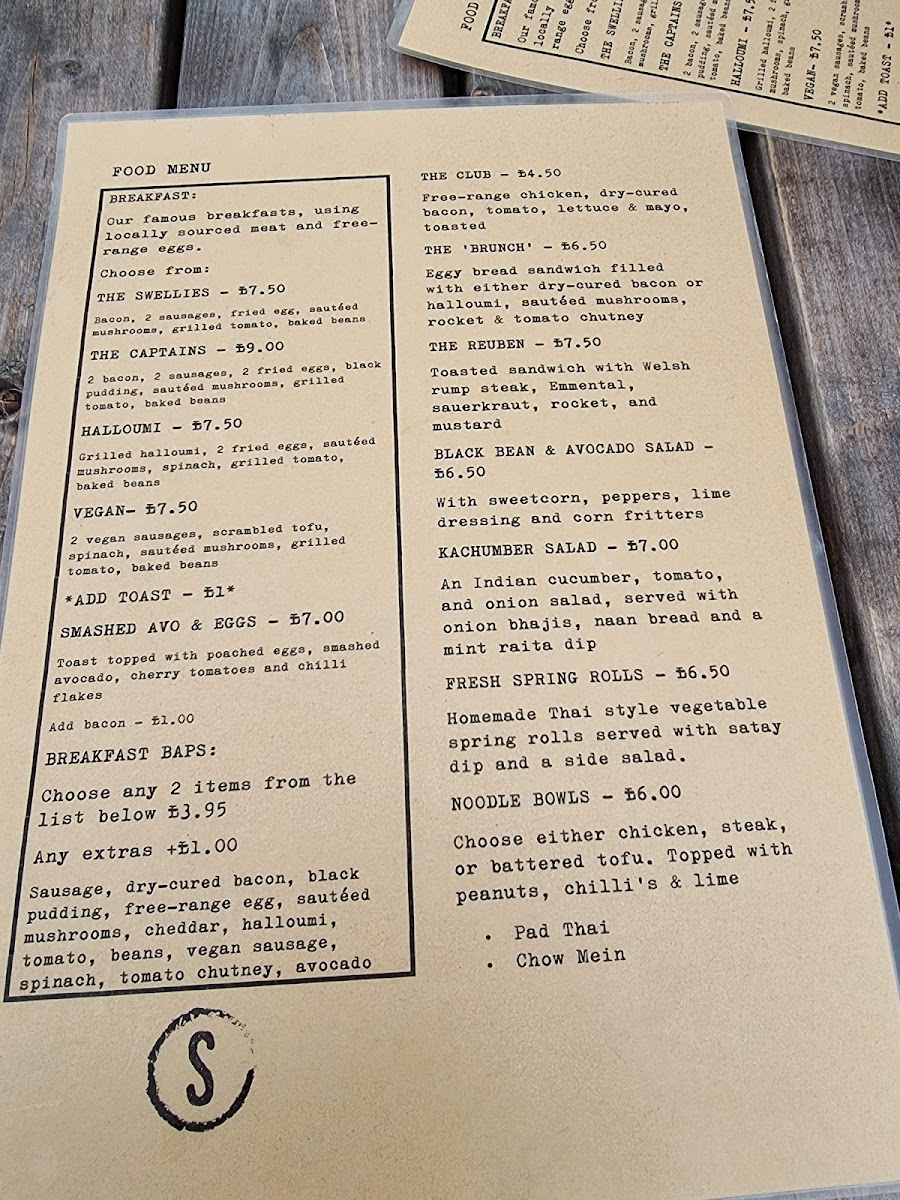 FOOD MENU
BREAKFAST:
Our famous breakfasts, using
locally sourced meat and free-
range eggs.
Choose from:
THE SWELLIES - £7.50
Bacon, 2 sausages, fried egg, sautéed
mushrooms, grilled tomato, baked beans
THE CAPTAINS - £9.00
2 bacon, 2 sausages, 2 fried eggs, black
pudding, sautéed mushrooms, grilled
tomato, baked beans
HALLOUMI - £7.50
Grilled halloumi, 2 fried eggs, sautéed
mushrooms, spinach, grilled tomato,
baked beans
VEGAN- £7.50
2 vegan sausages, scrambled tofu,
spinach, sautéed mushrooms, grilled
tomato, baked beans
*ADD TOAST - £1*
SMASHED AVO & EGGS - £7.00
Toast topped with poached eggs, smashed
avocado, cherry tomatoes and chilli
flakes
Add bacon - £1.00
BREAKFAST BAPS:
Choose any 2 items from the
list below £3.95
Any extras +£1.00
Sausage, dry-cured bacon, black
pudding, free-range egg, sautéed
mushrooms, cheddar, halloumi,
tomato, beans, vegan sausage,
spinach, tomato chutney, avocado
S
THE CLUB - £4.50
Free-range chicken, dry-cured
bacon, tomato, lettuce & mayo,
toasted
THE 'BRUNCH' - £6.50
Eggy bread sandwich filled
with either dry-cured bacon or
halloumi, sautéed mushrooms,
rocket & tomato chutney
THE REUBEN - £7.50
Toasted sandwich with Welsh
rump steak, Emmental,
sauerkraut, rocket, and
mustard
BLACK BEAN & AVOCADO SALAD -
£6.50
With sweetcorn, peppers, lime
dressing and corn fritters
KACHUMBER SALAD - £7.00
An Indian cucumber, tomato,
and onion salad, served with
onion bhajis, naan bread and a
mint raita dip
FRESH SPRING ROLLS - £6.50
Homemade Thai style vegetable
spring rolls served with satay
dip and a side salad.
NOODLE BOWLS - £6.00
Choose either chicken, steak,
or battered tofu. Topped with
peanuts, chilli's & lime
. Pad Thai
. Chow Mein
FOOD
Our
locally
range
Choose
THE
Bacon, 2
mushrooms,
THE CAPTAINS
2 bacon, 2
pudding, sautéed
tomato, baked beans
HALLOUMI -
Grilled halloumi, 2
mushrooms, spinach,
baked beans
VEGAN- £7.50
2 vegan sausages,
spinach, sautéed
tomato, baked beans
*ADD TOAST - £1*